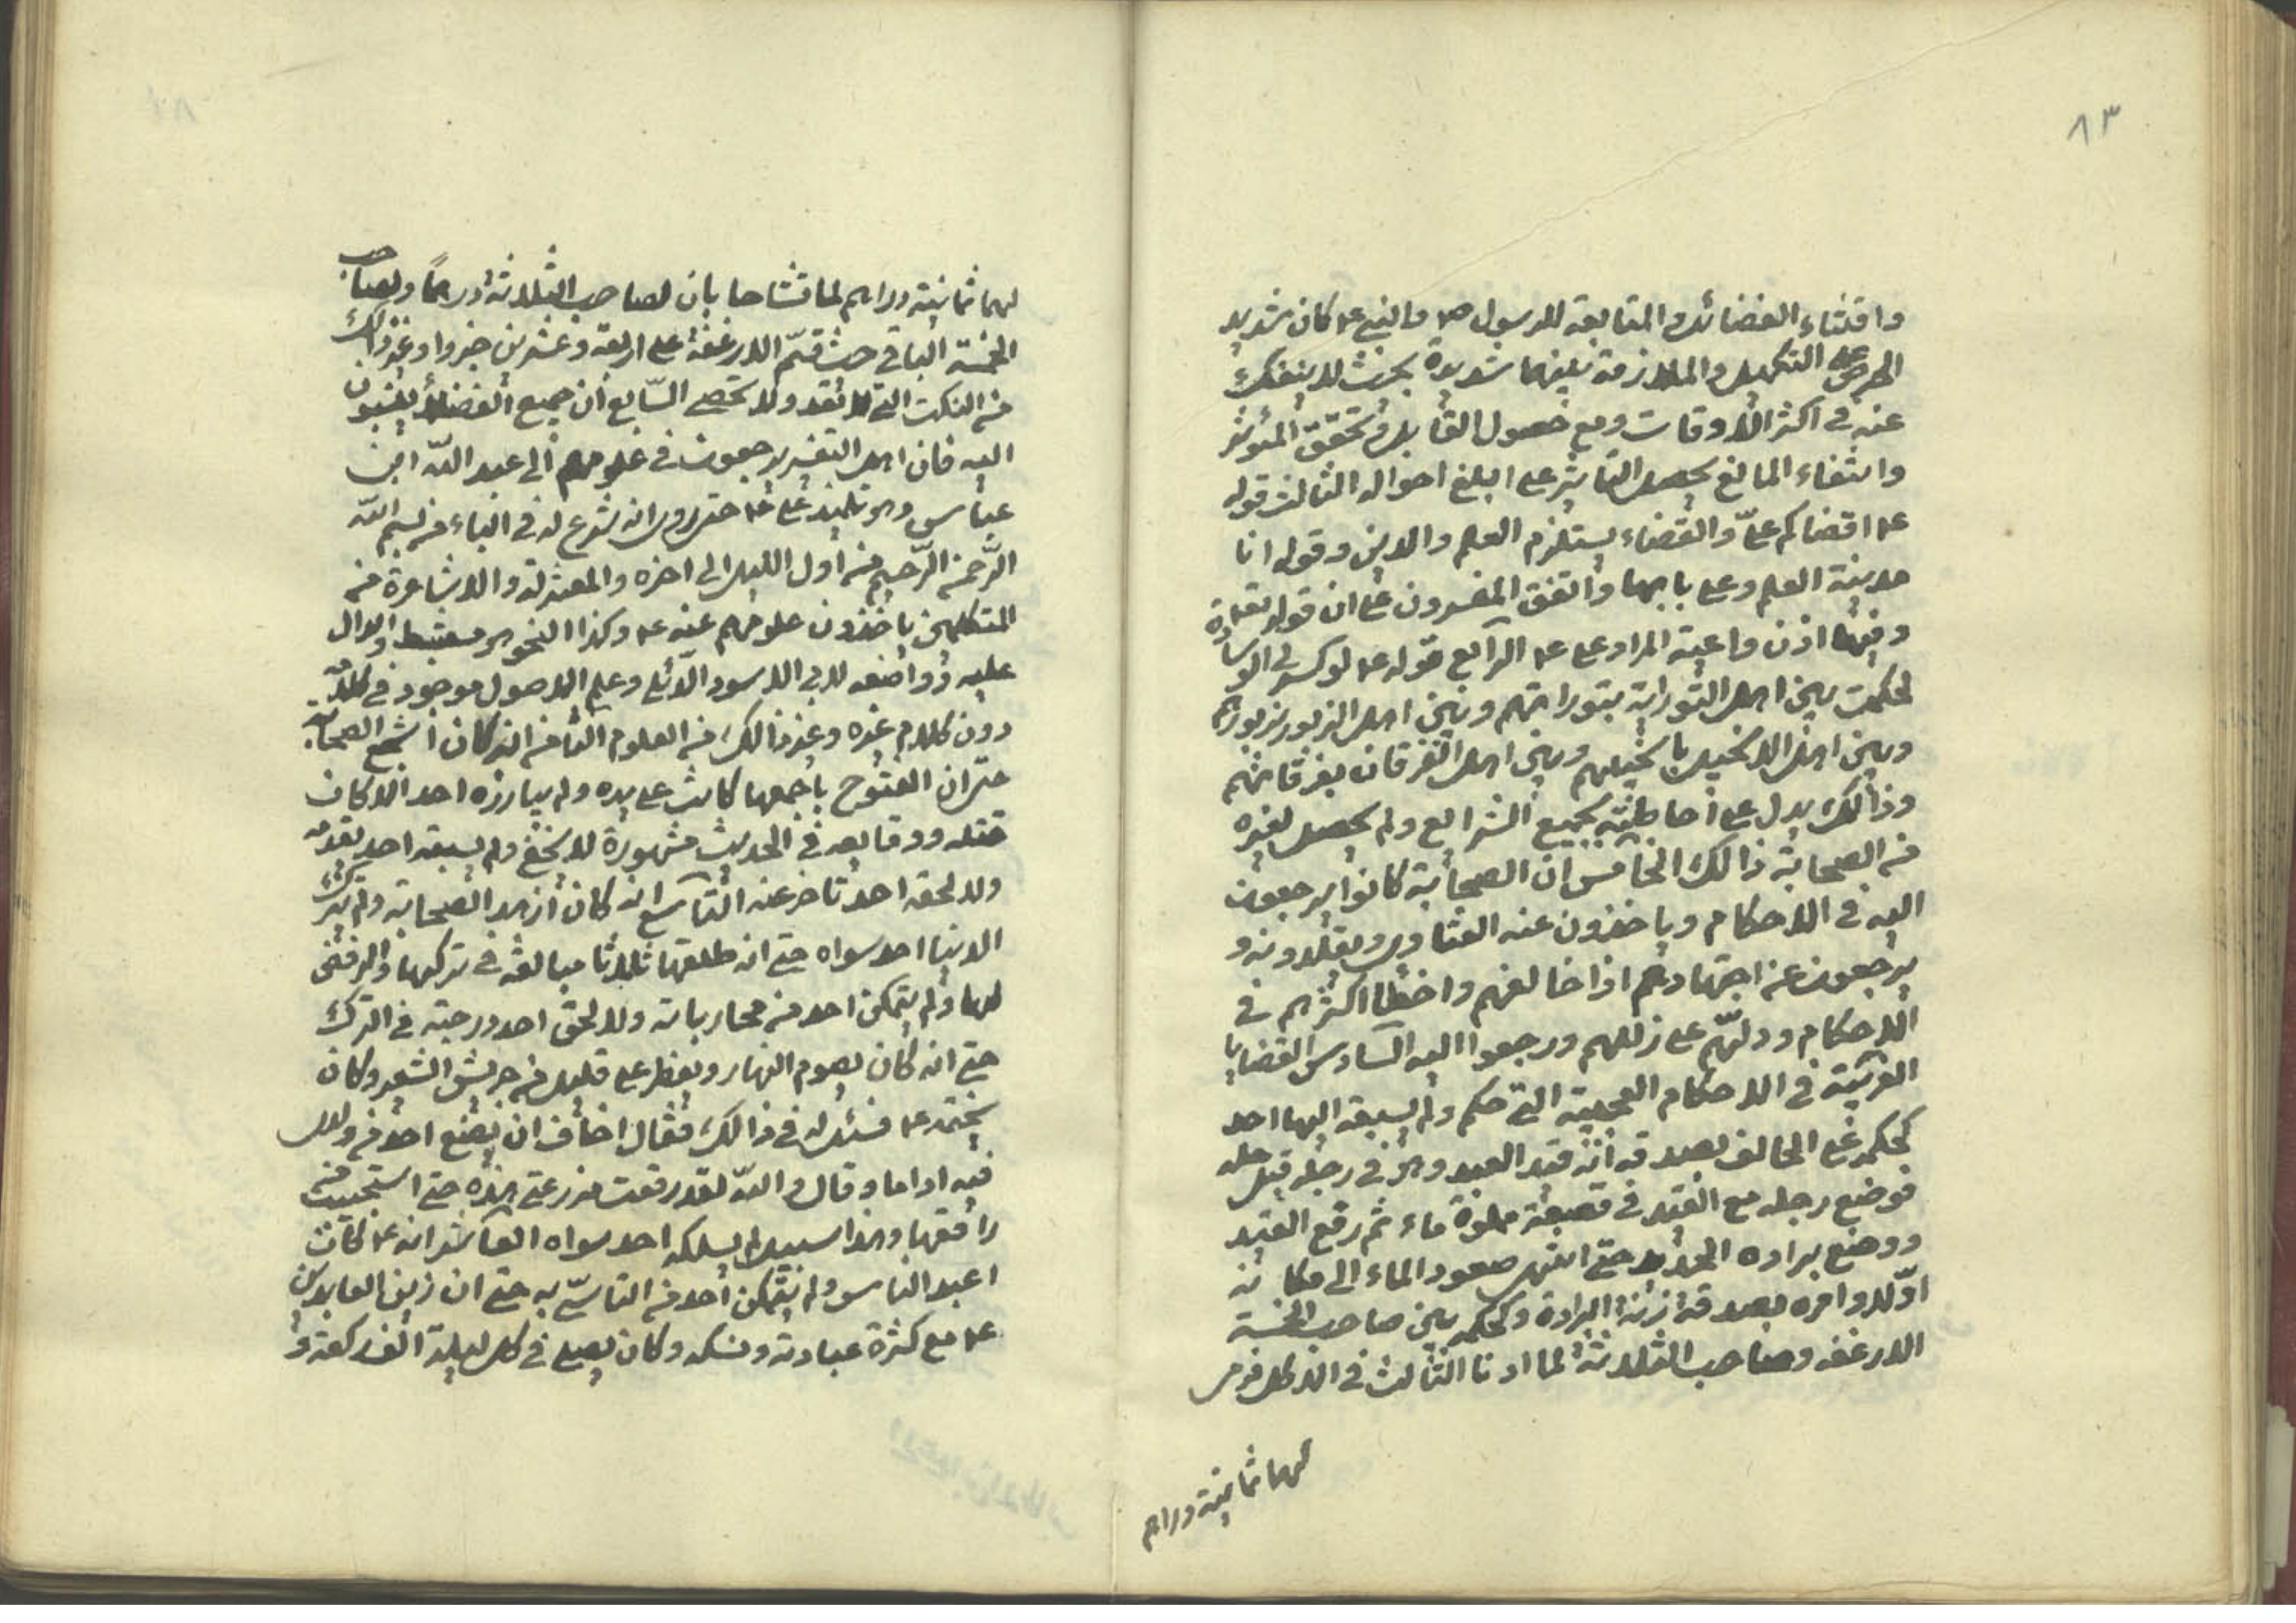 ٨٣
واقتناء الفضائل والمتابعة للرسول ص والنبي ع كان شديد
الحرص على التكميل والملازمة بينهما شديدة بحيث لا ينفك
عنه في اكثر الاوقات ومع حصول القابل وتحقق المؤثر
وانتفاء المانع يحصل التاثير على ابلغ احواله الثالث قوله
ع اقضاكم علىّ والقضاء يستلزم العلم والدين وقوله انا
مدينة العلم وعلى بابها واتفق المفسرون على ان قوله تعالى
وتعيها اذن واعية المراد على ع الرابع قوله ع لو كسر لى الوسادة
لحكمت بين اهل التورية بتوراتهم وبين اهل الزبور بزبورهم
وبين اهل الانجيل بانجيلهم وبين اهل الفرقان بفرقانهم
وذالك يدل على احاطته بجميع الشرايع ولم يحصل لغيره
من الصحابة ذالك الخامس ان الصحابة كانوا يرجعون
اليه في الاحكام وياخذون عنه الفتاوى ويقلدونه و
يرجعون عن اجتهادهم اذا خالفهم واخطا اكثرهم في
الاحكام ودلهّم على زللهم ورجعوا اليه السادس القضايا
الغريبة في الاحكام العجيبة التى حكم ولم يسبقه اليها احد
كحكمه على الحالف بصدقة زنة قيد العبد وهو في رجله قبل حله
فوضع رجله مع القيد في قصعة مملوة ماء ثم رفع القيد
ووضع برادة الحديد حتى انتهى صعود الماء الى مكانه
اوّلا وامره بصدقة زنة البرادة وكحكمه بين صاحب الخمسة
الارغفة وصاحب الثلاثة لما اذنا الثالث في الاكل فرمى
لهما ثمانية دراهم
لهما ثمانية دراهم لما تشاحا بان لصاحب الثلاثة درهمًا ولصاحب
الخمسة الباقي حيث قسّم الارغفة على اربعة وعشرين جزوا وغير ذالك
من النكت التى لا تعد ولا تحصى السّابع ان جميع الفضلاء ينتسبون
اليه فان اهل التفسير يرجعون في علومهم الى عبد الله ابن
عباس وهو تلميذ على ع حتى روى انه شرع له في الباء من بسم الله
الرّحمن الرّحيم من اول الليل الى اخره والمعتزلة والاشاعرة من
المتكلمين ياخذون علومهم عنه ع وكذا النحو هو مستنبط والدال
عليه وواضعه لابى الاسود الدئلى وعلم الاصول موجود في كلامه
دون كلام غيره وغير ذالك من العلوم الثامن انه كان اشجع الصحابة
حتى ان الفتوح باجمعها كانت على يده ولم يبارزه احد الا كان
قتله ووقايعه في الحديث مشهورة لا تخفى ولم يسبقه احد تقدمه
ولا لحقه احد تاخر عنه التاسع انه كان ازهد الصحابة ولم يترك
الدنيا احد سواه حتى انه طلقها ثلاثا مبالغة في تركها والرفض
لها ولم يتمكن احد من محارباته ولا لحق احد درجته في الترك
حتى انه كان يصوم النهار ويفطر على قليل من جريش الشعير وكان
يختمه ع فسئل له في ذالك فقال اخاف ان يضع احد من ولدى
فيه اداما وقال والله لقد رقعت مدرعتى هذه حتى استحييت من
راقعها وهذا سبيل لم يسلكه احد سواه العاشر انه ع كان
اعبد الناس ولم يتمكن احد من التاسّى به حتى ان زين العابدين
ع مع كثرة عبادته ونسكه وكان يصلى في كل ليلة الف ركعة و